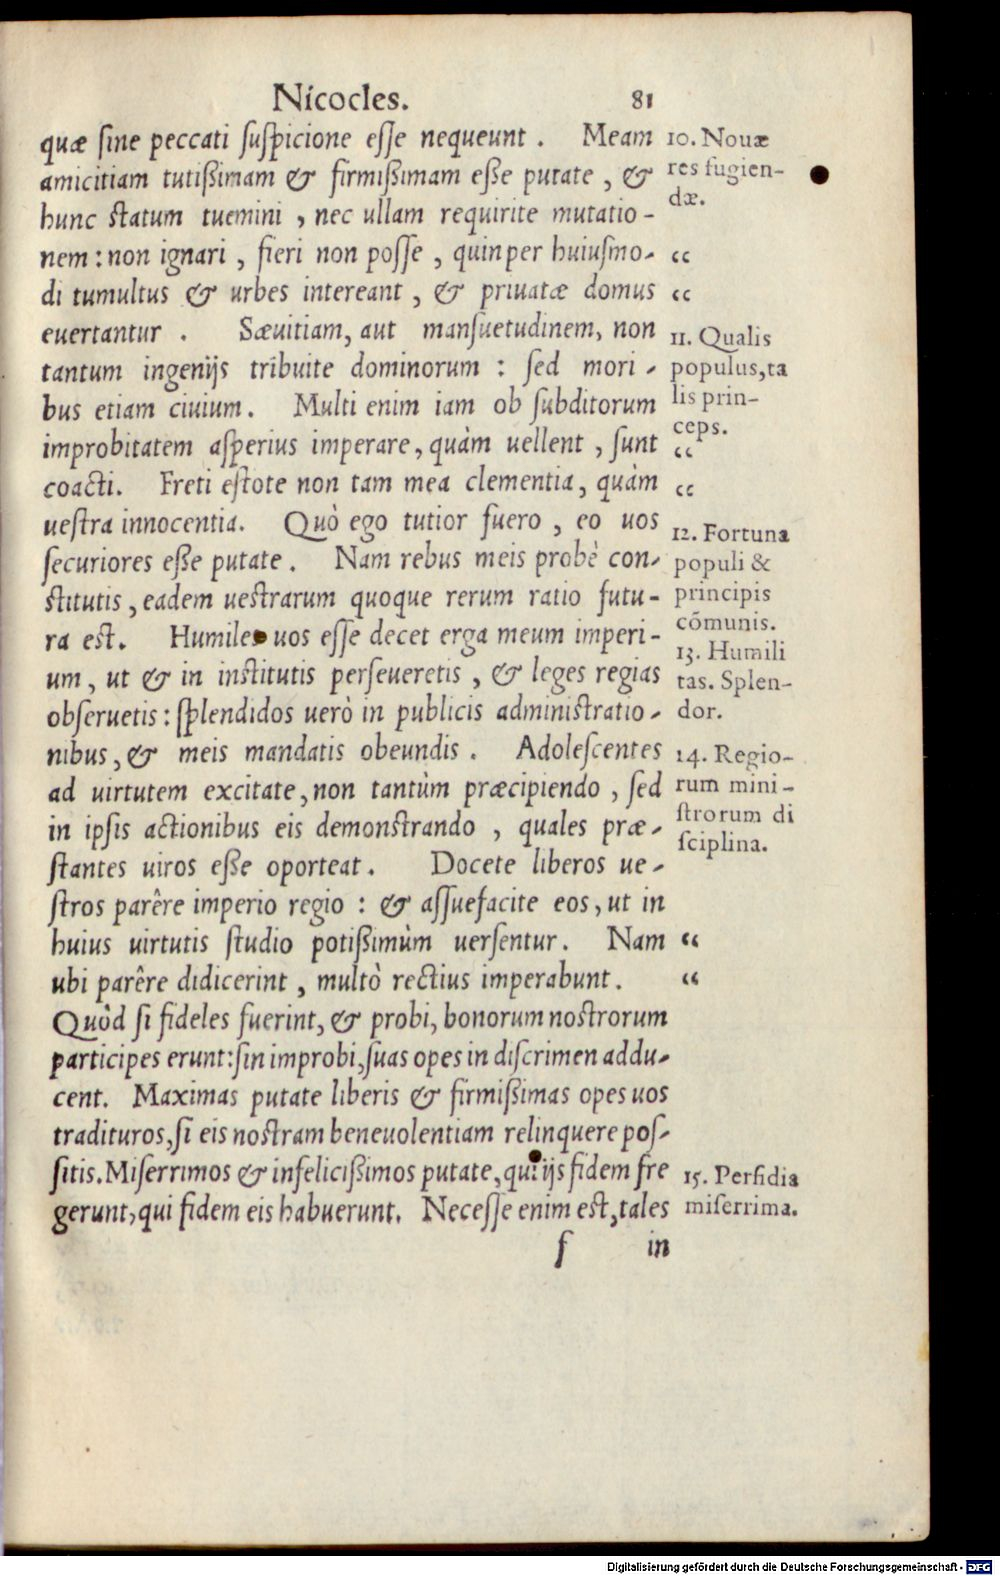 Nicocles. 81
quæ sine peccati suspicione esse nequeunt . Meam
amicitiam tutißimam & firmißimam eße putate , &
hunc statum tuemini , nec ullam requirite mutatio-
nem : non ignari , fieri non posse , quin per huiusmo-
di tumultus & urbes intereant , & priuatæ domus
euertantur . Sæuitiam, aut mansuetudinem, non
tantum ingenijs tribuite dominorum : sed mori-
bus etiam ciuium. Multi enim iam ob subditorum
improbitatem asperius imperare, quàm uellent , sunt
coacti. Freti estote non tam mea clementia, quàm
uestra innocentia. Quò ego tutior fuero , eo uos
securiores eße putate . Nam rebus meis probè con-
stitutis, eadem uestrarum quoque rerum ratio futu-
ra est. Humiles uos esse decet erga meum imperi-
um, ut & in institutis perseueretis , & leges regias
obseruetis : splendidos uerò in publicis administratio-
nibus, & meis mandatis obeundis . Adolescentes
ad uirtutem excitate, non tantùm præcipiendo , sed
in ipsis actionibus eis demonstrando , quales præ-
stantes uiros eße oporteat . Docete liberos ue-
stros parêre imperio regio : & assuefacite eos, ut in
huius uirtutis studio potißimùm uersentur. Nam
ubi parêre didicerint , multò rectius imperabunt .
Quòd si fideles fuerint, & probi, bonorum nostrorum
participes erunt: sin improbi, suas opes in discrimen addu-
cent. Maximas putate liberis & firmißimas opes uos
tradituros, si eis nostram beneuolentiam relinquere pos-
sitis. Miserrimos & infelicißimos putate, qui ijs fidem fre
gerunt, qui fidem eis habuerunt. Necesse enim est, tales
f in
10. Nouæ
res fugien-
dæ.
“
“
11. Qualis
populus, ta
lis prin-
ceps.
“
“
12. Fortuna
populi &
principis
cõmunis.
13. Humili
tas. Splen-
dor.
14. Regio-
rum mini-
strorum di
sciplina.
“
“
15. Perfidia
miserrima.
Digitalisierung gefördert durch die Deutsche Forschungsgemeinschaft - DFG